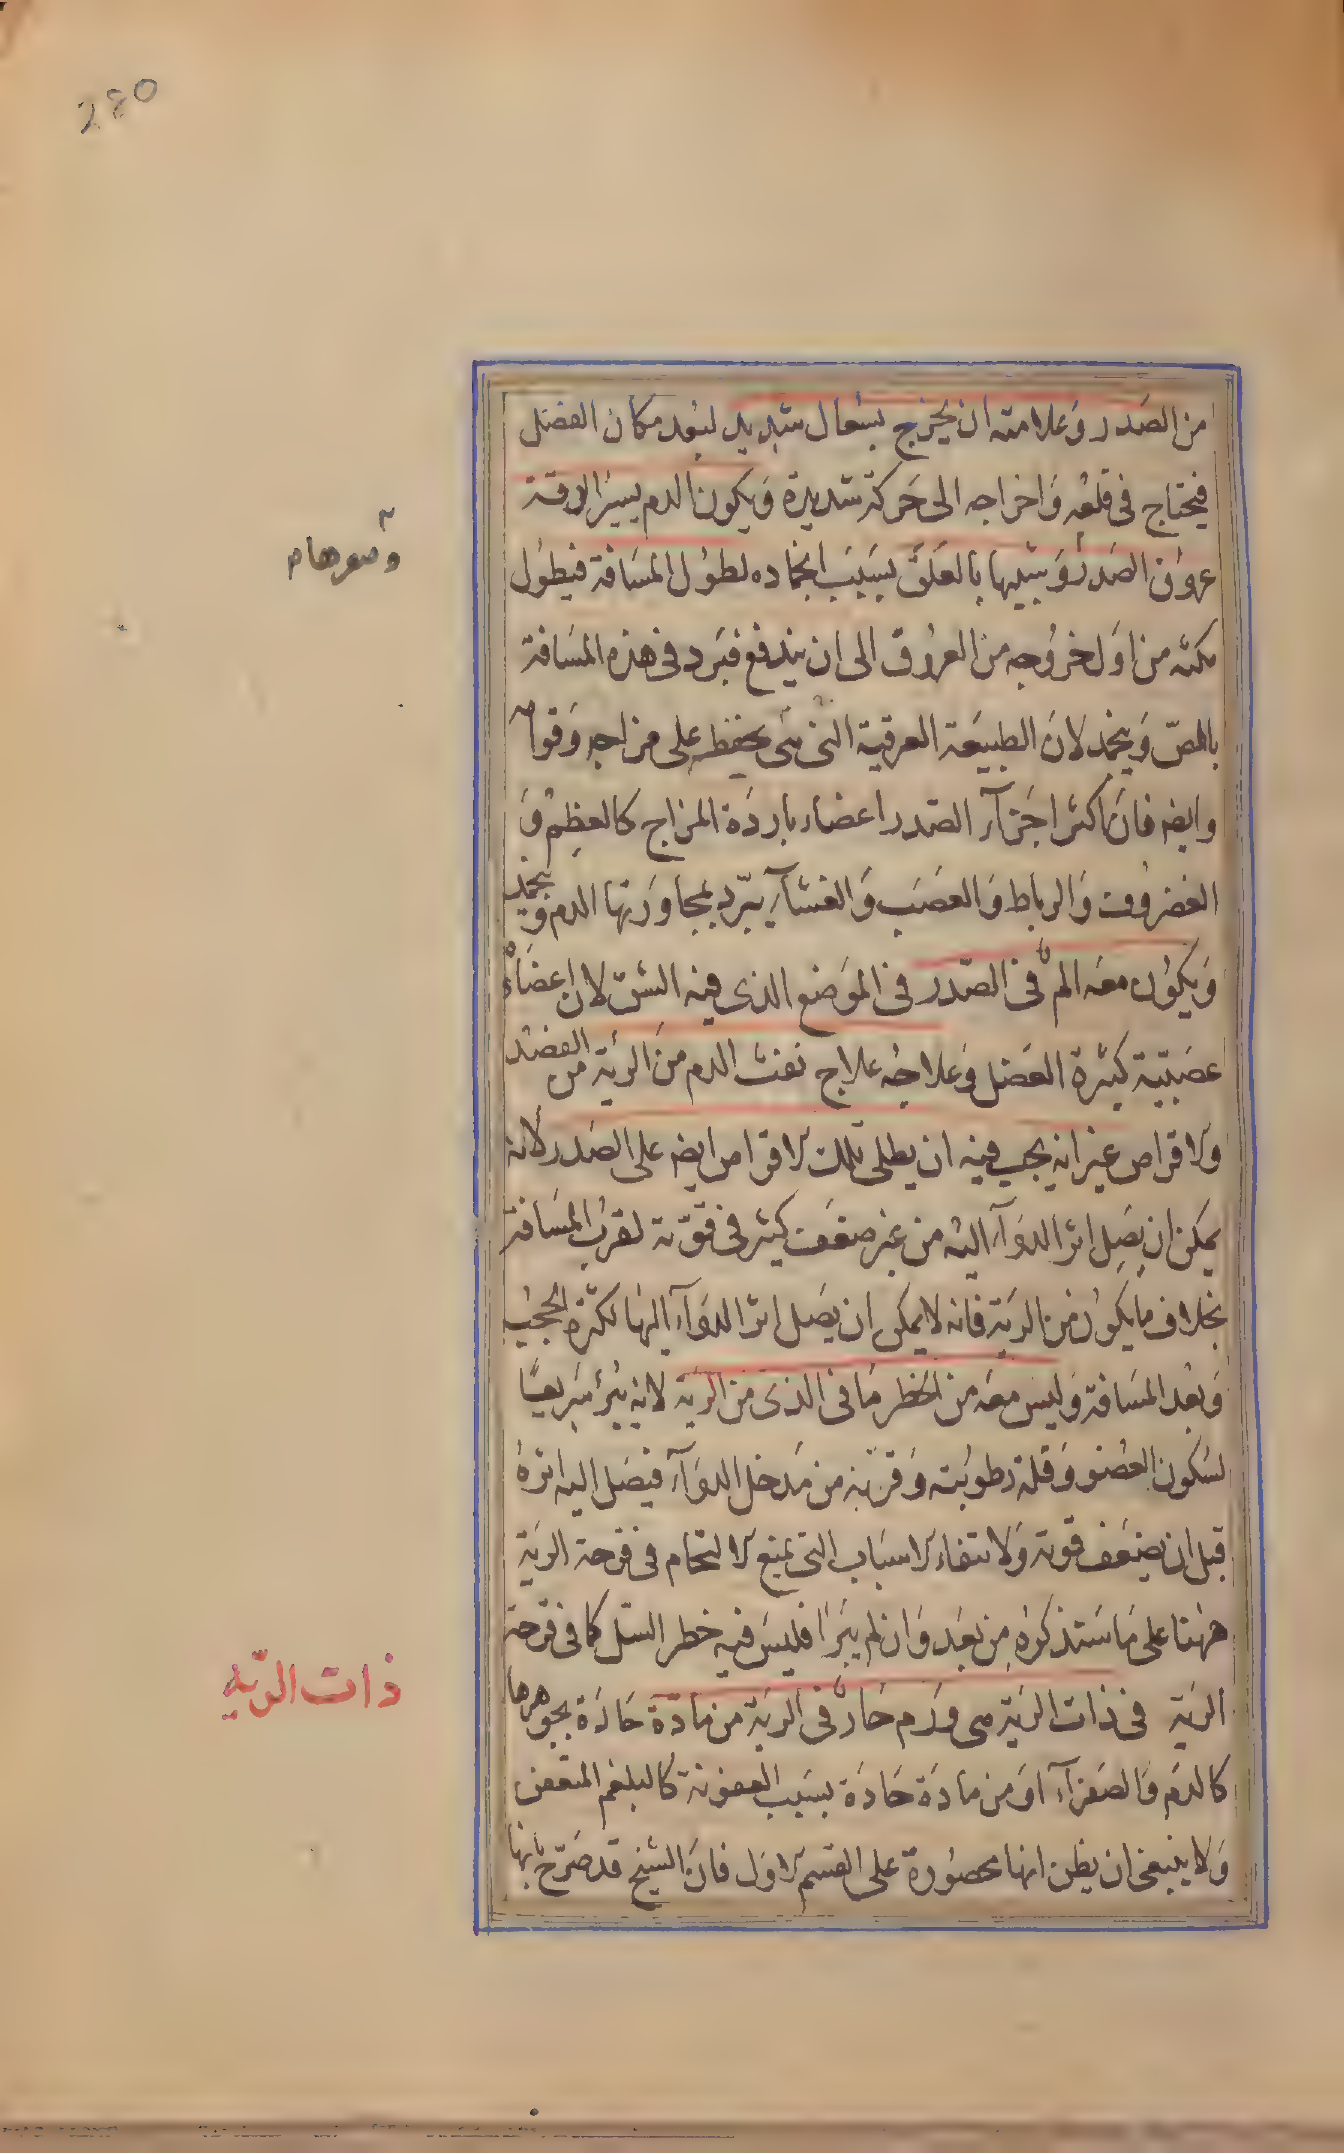 280
من الصدر وعلامته ان يخرج بسعال شديد لبعد مكان الفضل
فيحتاج فى قلعه واخراجه الى حركة شديدة ويكون الدم يسيرا لدقة
وصغرها م
عروق الصدر وشبيها بالعلق بسبب انجماده لطول المسافة فيطول
مكثه من اول خروجه من العروق الى ان يندفع فبرد فى هذه المسافة
وينجمد لان الطبيعة العرقية التى هى يحفظه على مزاجه وقوامه
وايضه فان اكثر اجزآء الصدر اعضاء باردة المزاج كالعظم و
الغضروف والرباط والعصب والغشآء يبرد بمجاورتها الدم وينجمد
ويكون معه الم فى الصدر فى الموضع الذى فيه الشق لان اعضاءه
عصبيية كثيرة العضل وعلاجه علاج نفث الدم من الرئة من الفصد
والاقراص غير انه يجب فيه ان يطلى تلك الاقراص ايضه على الصدر لانه
يمكن ان يصل اثر الدوآء اليه من غير ضعف كثير فى قوته لقرب المسافة
بخلاف ما يكون من الرية فانه لا يمكن ان يصل اثر الدوآء اليها لكثرة الحجب
وبعد المسافة وليس معه من الخطر ما فى الذى من الرية لانه يبرأ سريعا
لسكون العضو وقلة رطوبته وقربه من مدخل الدوآء فيصل اليه اثره
قبل ان يضعف قوته ولانتفاء الاسباب التى يمنع الالتحام فى قرحة الرية
ههنا على ما سنذكره من بعد وان لم يبرا فليس فيه خطر السل كما فى قرحة
ذات الريه
الرية فى ذات الرية هى ورم حار فى الرية من مادة حادة بجوهرها
كالدم والصفرآء او من مادة حادة بسبب العفونة كالبلغم المتعفن
ولا ينبغى ان يظن انها محصورة على القسم الاول فان الشيخ قد صرح بانها